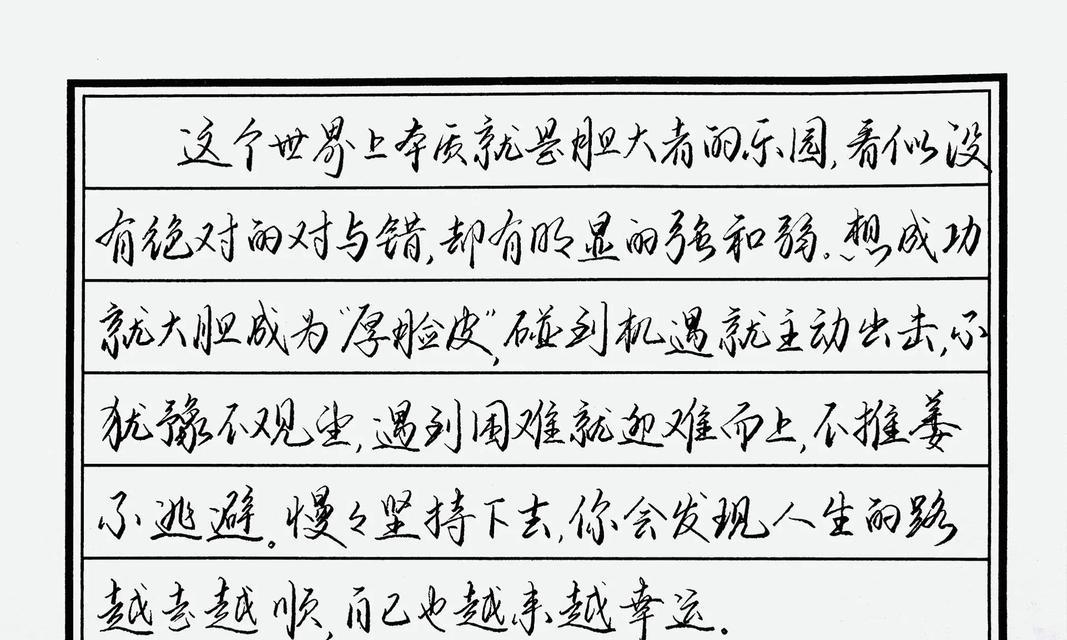 这个世界上本质就是胆大者的乐园,看似没
有绝对的对与错,却有明显的强和弱。想成功
就大胆成为“厚脸皮”,碰到机遇就主动出击,不
犹豫不观望,遇到困难就迎难而上,不推萎
不逃避。慢々坚持下去,你会发现人生的路
越走越顺,自己也越来越幸运.